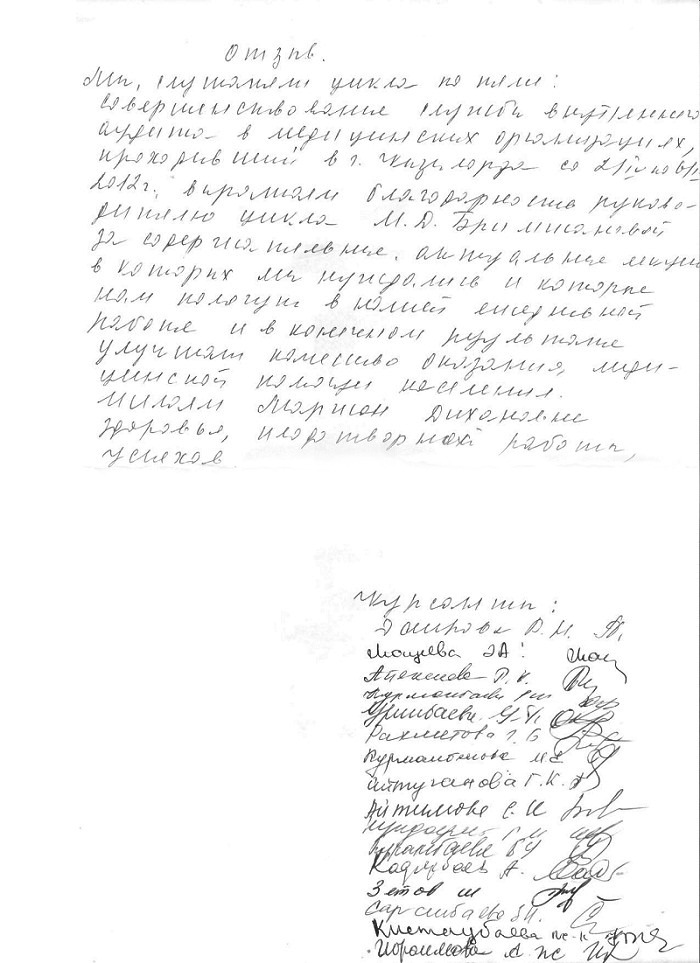 Отзыв.
Мы, слушатели цикла по теме:
совершенствование службы внутреннего
аудита в медицинских организациях,
проходивший в г. Кызылорда со
2012г., выражаем благодарность руково-
дителю цикла М.Д. Бримжановой
за содержательные, актуальные лекции
в которых мы нуждались и которые
нам помогут в нашей ежедневной
работе и в конечном результате
улучшат качество оказания меди-
цинской помощи населения.
Желаем Маржан Дихановне
здоровья, плодотворной работы,
успехов
Курсанты:
Даирова
Мощева
Р.К.
Урынбаева
Рахметова Г.Б
Курманбекова
Айтуганова Г.К.
Айтимова С.И
Кадырбаев А.
Зетов
Сарсенбаева
Кистаубаева
Ибраимова